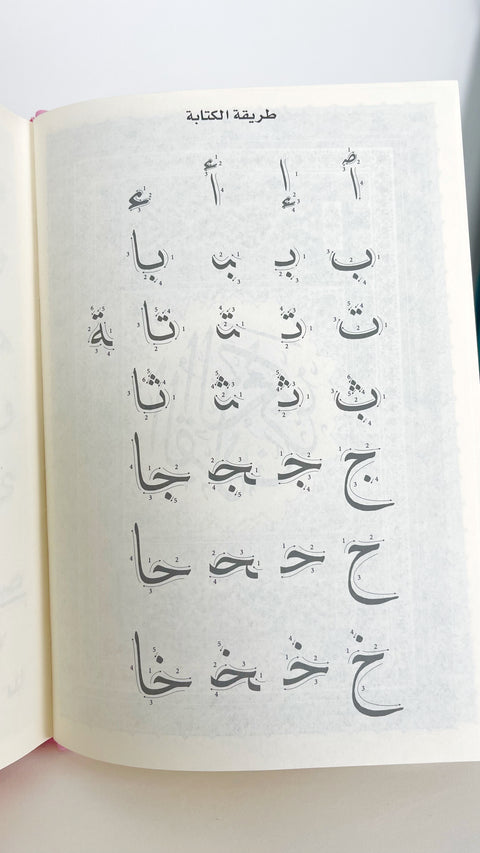 طريقة الكتابة
أ إ أ ء
ب بـ ـبـ با
ت تـ ـتـ تا ة
ث ثـ ـثـ ثا
ج جـ ـجـ جا
ح حـ ـحـ حا
خ خـ ـخـ خا